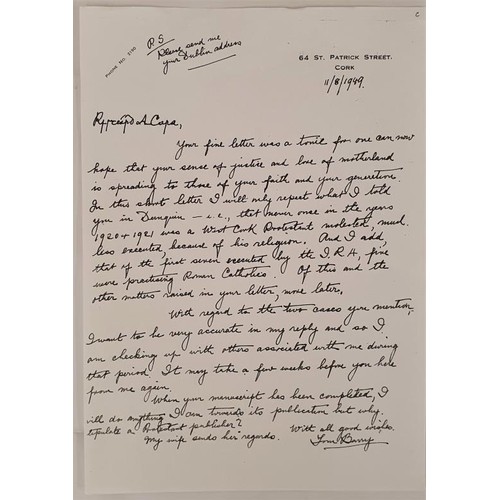 P.S
Please send me
your Dublin address
PHONE NO.
64 ST. PATRICK STREET.
CORK
11/8/1949.
A Cara,
Your fine letter was a tonic for one can now
hope that your sense of justice and love of motherland
is spreading to those of your faith and your generation.
In this short letter I will only repeat what I told
you in Dunquin – i.e., that never once in the years
1920 & 1921 was a West Cork Protestant molested, much
less executed because of his religion. And I add,
that of the first seven executed by the I.R.A, five
were practising Roman Catholics. Of this and the
other matters raised in your letter, more later.
With regard to the two cases you mention,
I want to be very accurate in my reply and so I
am checking up with others associated with me during
that period. It may take a few weeks before you hear
from me again.
When your manuscript has been completed, I
will do anything I can towards its publication but why
stipulate a Protestant publisher?
With all good wishes.
My wife sends her regards.
Tom Barry